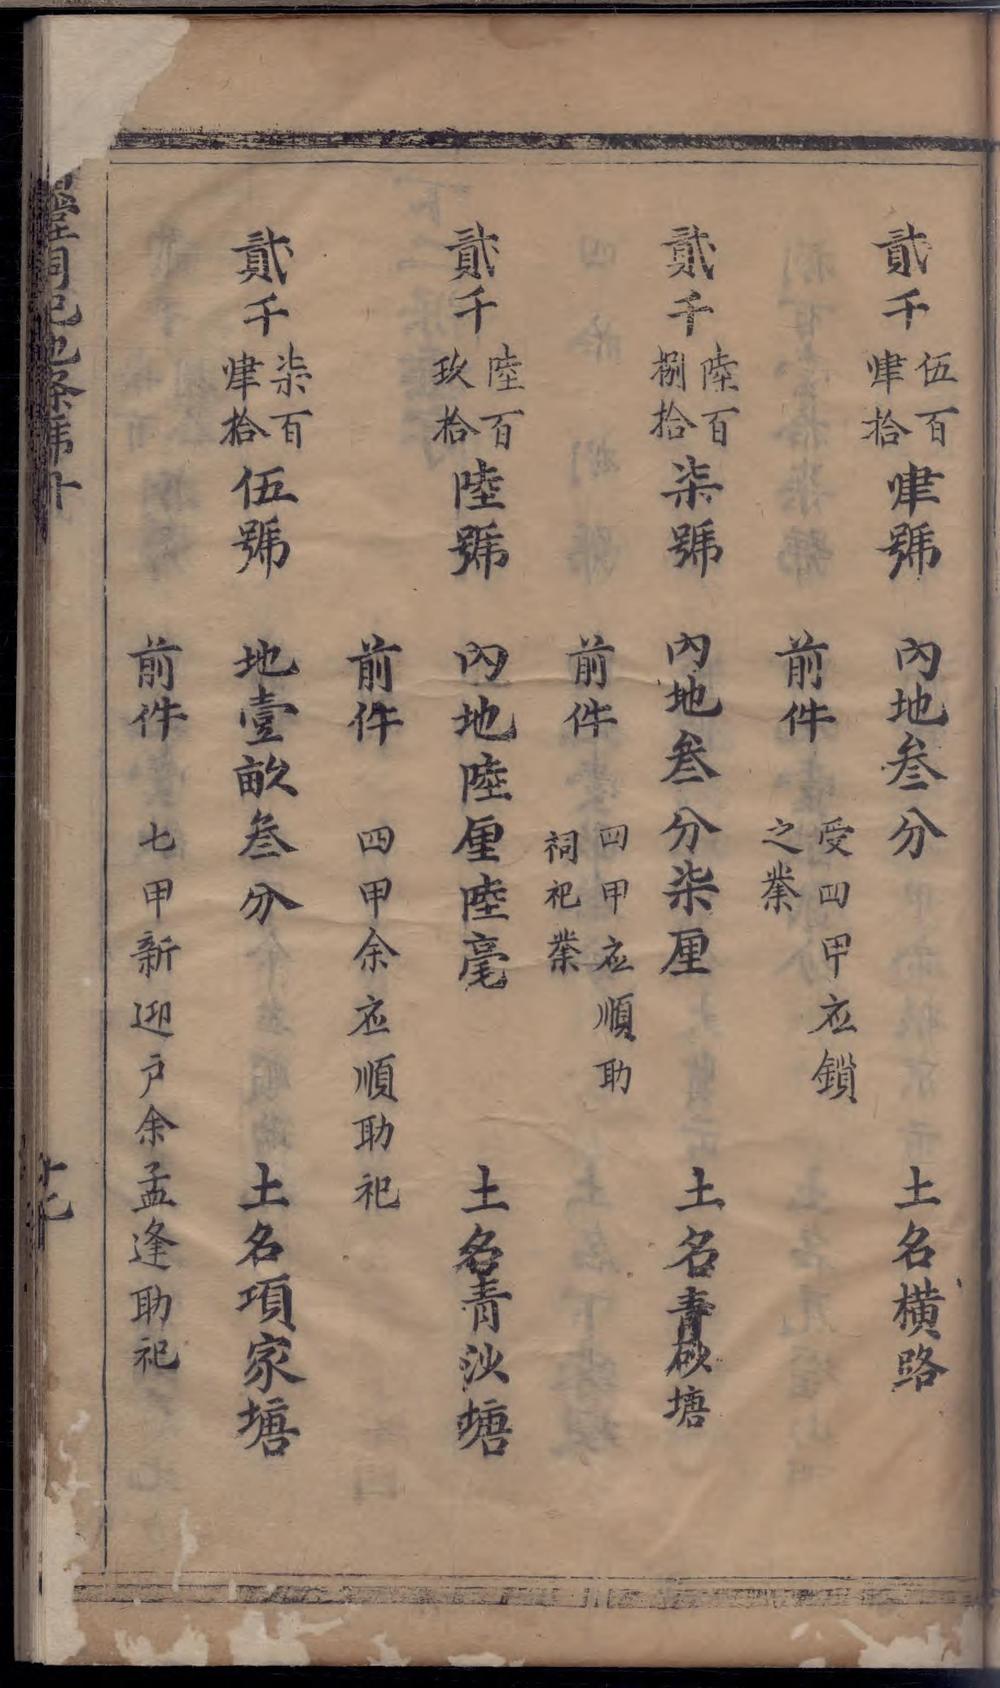 貳千伍百肆拾肆號　內地叁分　土名橫路
前件　受四甲应鎖之業
貳千陸百捌拾柒號　內地叁分柒厘　土名青砂塘
前件　四甲应順助祠祀業
貳千陸百玖拾陸號　內地陸厘陸毫　土名青沙塘
前件　四甲余应順助祀
貳千柒百肆拾伍號　地壹畝叁分　土名項家塘
前件　七甲新迎户余孟逢助祀